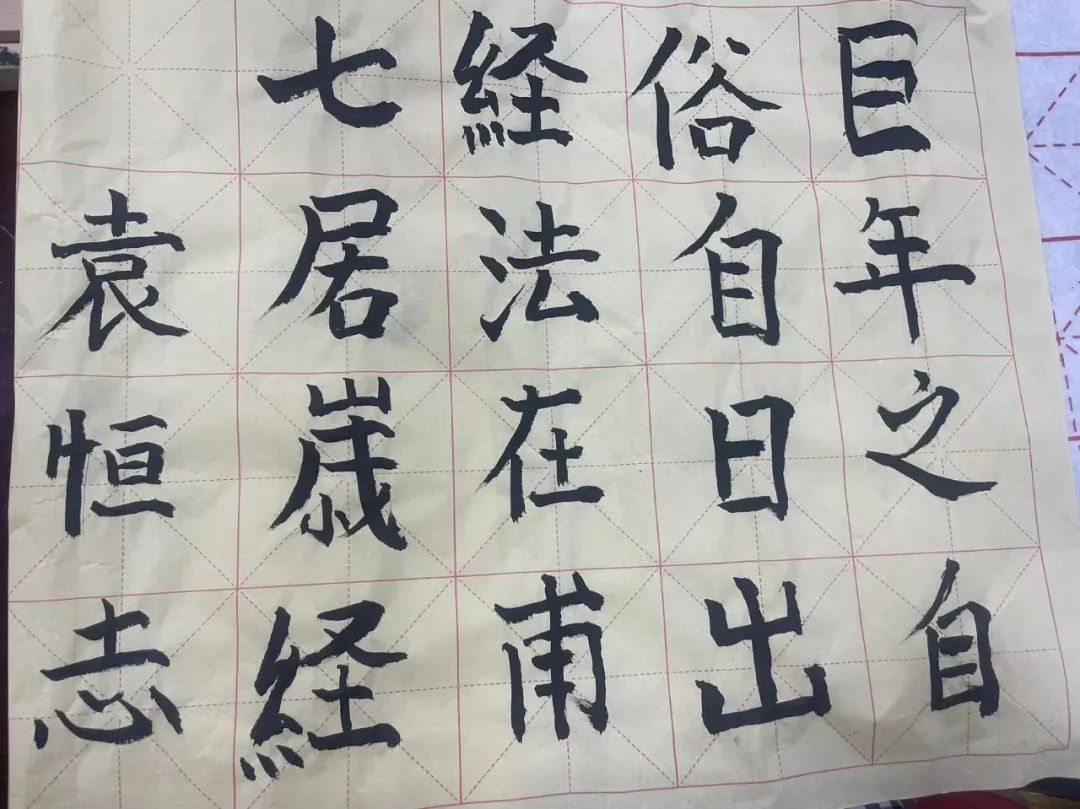 巨年之自
俗自日出
経法在甫
七居嵗経
袁恒志